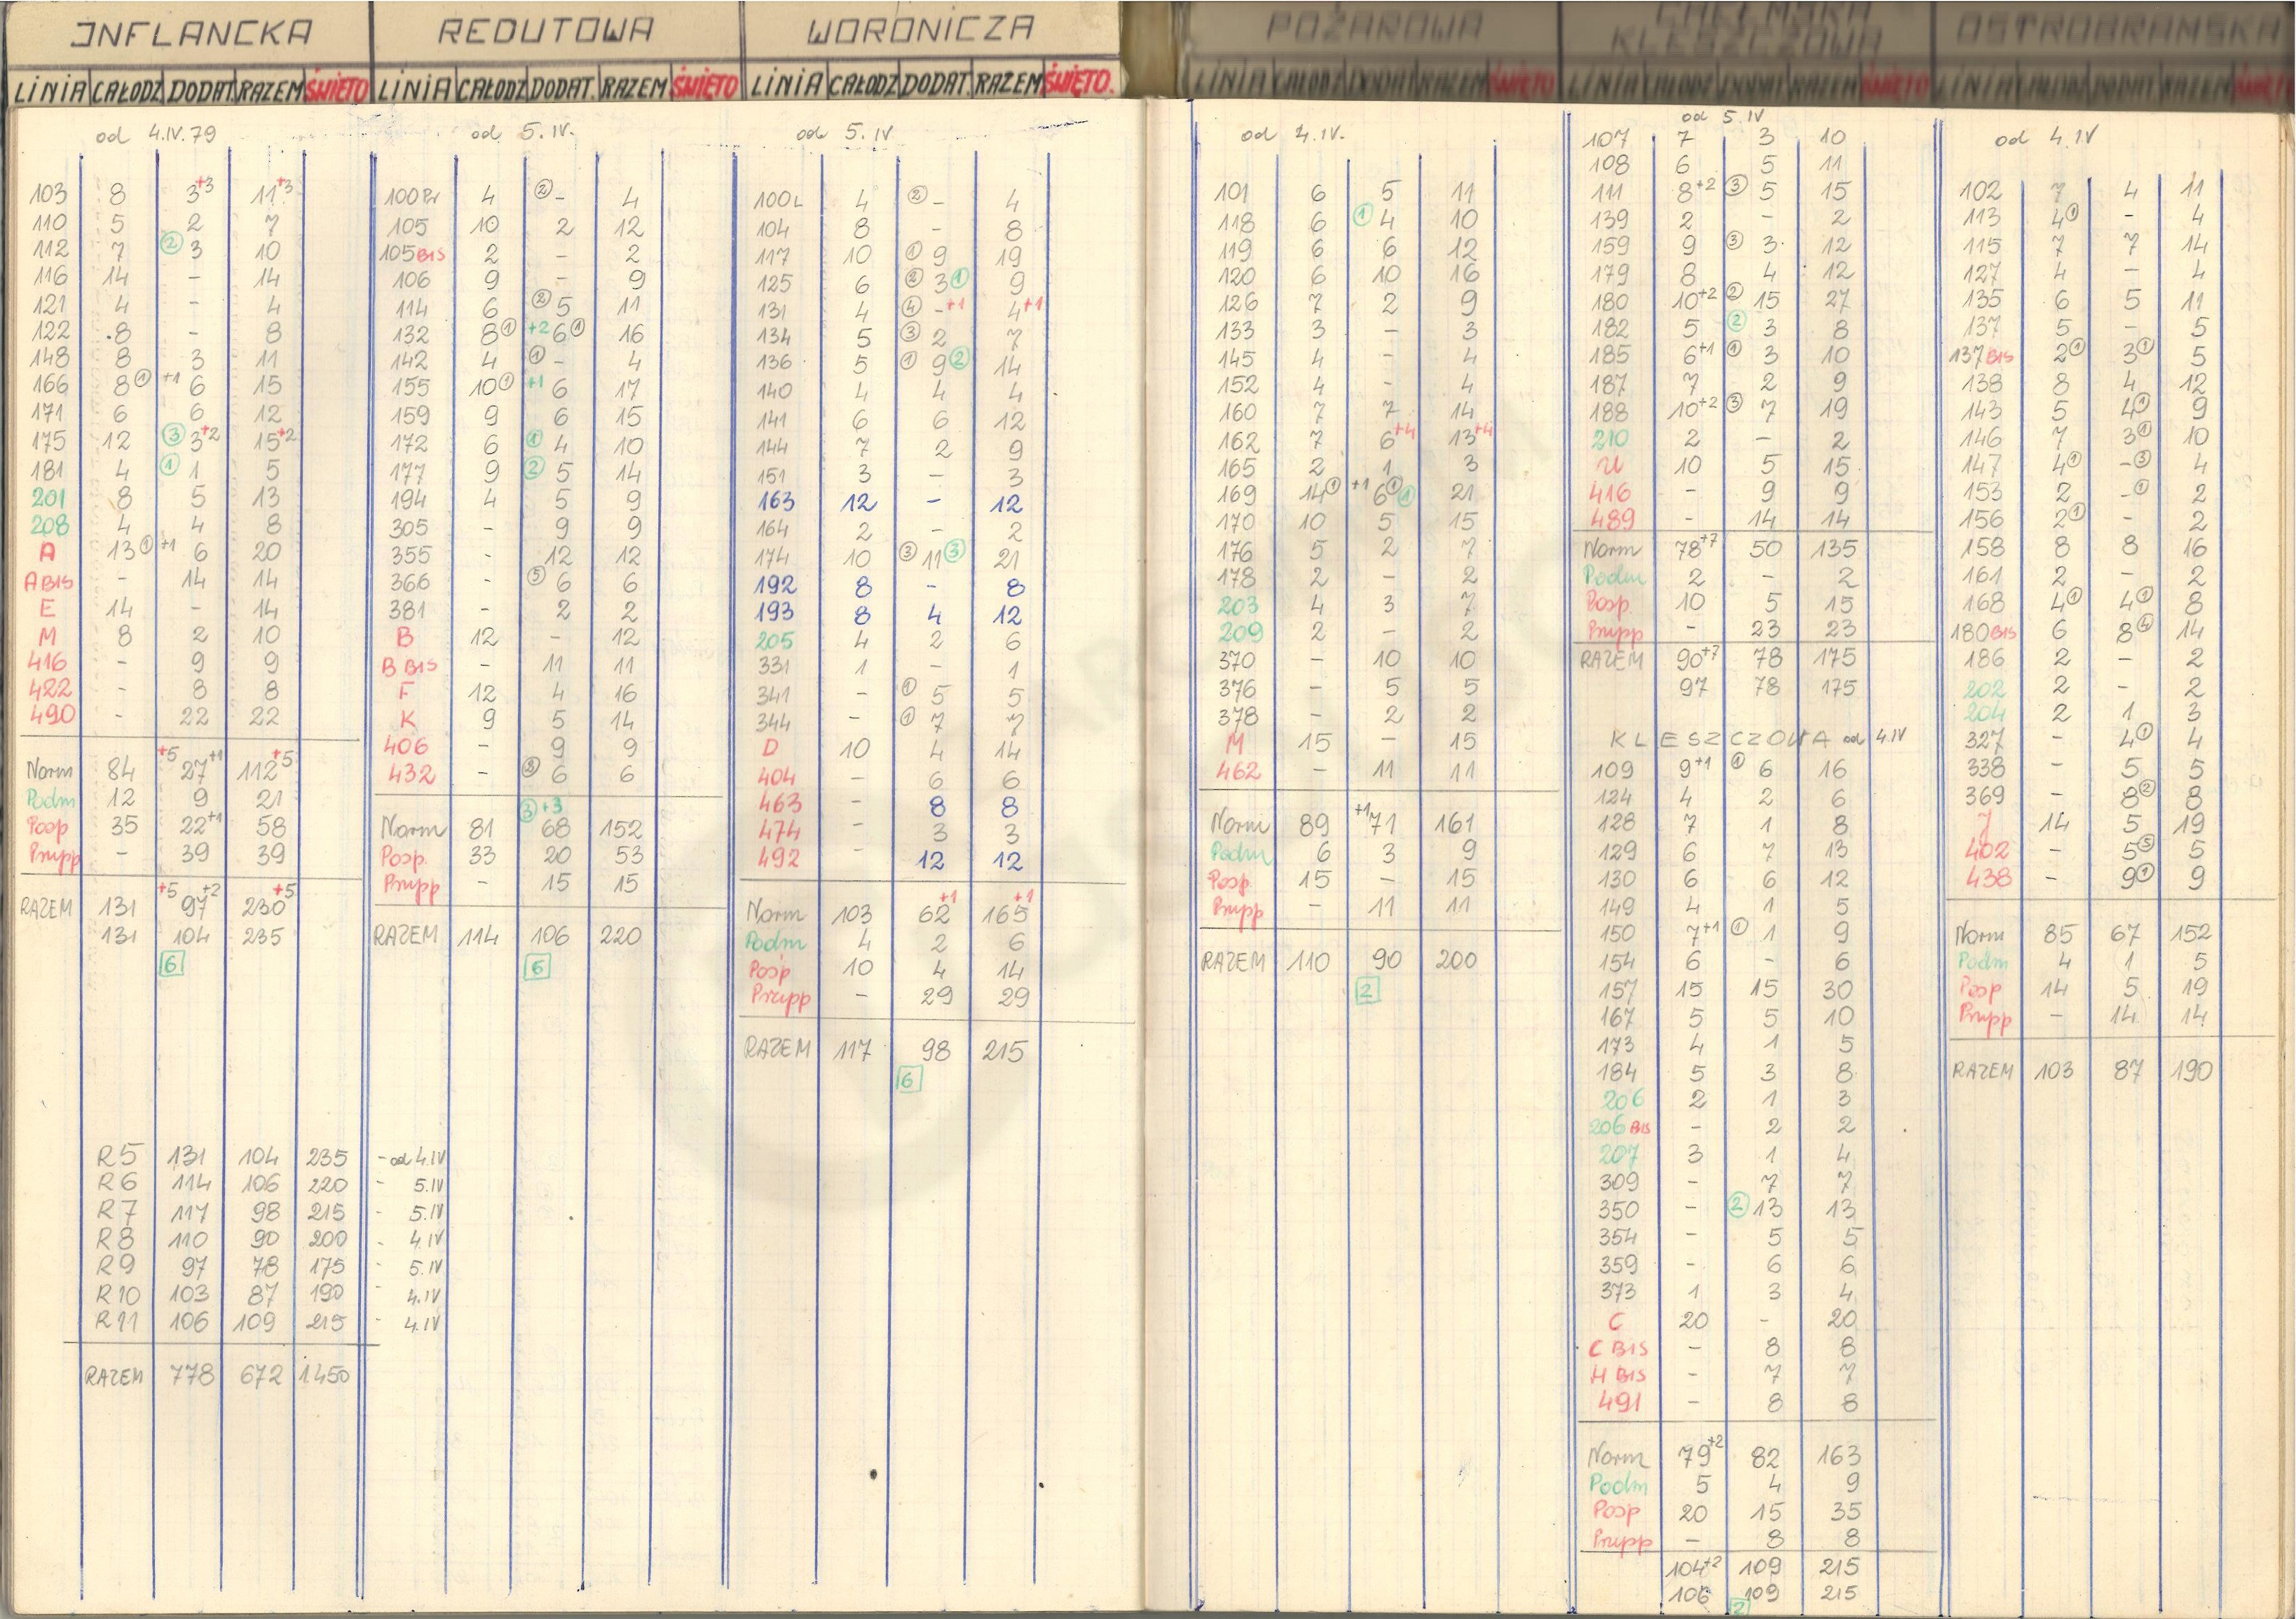 INFLANCKA
LINIA CAŁODZ DODAT RAZEM ŚWIĘTO
od 4.IV.79
103 8 3+3 11+3
110 5 2 7
112 7 ② 3 10
116 14 - 14
121 4 - 4
122 8 - 8
148 8 3 11
166 8① +1 6 15
171 6 6 12
175 12 ③ 3+2 15+2
181 4 ① 1 5
201 8 5 13
208 4 4 8
A 13① +1 6 20
A BIS - 14 14
E 14 - 14
M 8 2 10
416 - 9 9
422 - 8 8
490 - 22 22
Norm 84 +5 27+1 112+5
Podm 12 9 21
Posp 35 22+1 58
Prupp - 39 39
RAZEM 131 +5 97+2 230+5
131 104 235
6
R5 131 104 235 - od 4.IV
R6 114 106 220 - 5.IV
R7 117 98 215 - 5.IV
R8 110 90 200 - 4.IV
R9 97 78 175 - 5.IV
R10 103 87 190 4.IV
R11 106 109 215 - 4.IV
RAZEM 778 672 1450
REDUTOWA
LINIA CAŁODZ DODAT. RAZEM ŚWIĘTO
od 5.IV.
100Pr 4 ② - 4
105 10 2 12
105BIS 2 - 2
106 9 - 9
114 6 ② 5 11
132 8① +2 6① 16
142 4 ① - 4
155 10① +1 6 17
159 9 6 15
172 6 ① 4 10
177 9 ② 5 14
194 4 5 9
305 - 9 9
355 - 12 12
366 - ⑤ 6 6
381 - 2 2
B 12 - 12
B BIS - 11 11
F 12 4 16
K 9 5 14
406 - 9 9
432 - ② 6 6
③ +3
Norm 81 68 152
Posp. 33 20 53
Prupp - 15 15
RAZEM 114 106 220
6
WORONICZA
LINIA CAŁODZ DODAT. RAZEM ŚWIĘTO.
od 5.IV
100L 4 ② - 4
104 8 - 8
117 10 ① 9 19
125 6 ② 3① 9
131 4 ④ -+1 4+1
134 5 ③ 2 7
136 5 ① 9② 14
140 4 4 4
141 6 6 12
144 7 2 9
151 3 - 3
163 12 - 12
164 2 - 2
174 10 ③ 11③ 21
192 8 - 8
193 8 4 12
205 4 2 6
331 1 - 1
341 - ① 5 5
344 - ① 7 7
D 10 4 14
404 - 6 6
463 - 8 8
474 - 3 3
492 - 12 12
Norm 103 62+1 165+1
Podm 4 2 6
Posp 10 4 14
Prupp - 29 29
RAZEM 117 98 215
6
POŻAROWA
LINIA CAŁODZ DODAT RAZEM ŚWIĘTO
od 4.IV.
101 6 5 11
118 6 ① 4 10
119 6 6 12
120 6 10 16
126 7 2 9
133 3 - 3
145 4 - 4
152 4 - 4
160 7 7 14
162 7 6+4 13+4
165 2 1 3
169 14① +1 6①① 21
170 10 5 15
176 5 2 7
178 2 - 2
203 4 3 7
209 2 - 2
370 - 10 10
376 - 5 5
378 - 2 2
M 15 - 15
462 - 11 11
Norm 89 +1 71 161
Podm 6 3 9
Posp 15 - 15
Prupp - 11 11
RAZEM 110 90 200
2
CHEŁMSKA
KLESZCZOWA
LINIA CAŁODZ DODAT RAZEM ŚWIĘTO
od 5.IV
107 7 3 10
108 6 5 11
111 8+2 ③ 5 15
139 2 - 2
159 9 ③ 3 12
179 8 4 12
180 10+2 ② 15 27
182 5 ② 3 8
185 6+1 ① 3 10
187 7 2 9
188 10+2 ③ 7 19
210 2 - 2
U 10 5 15
416 - 9 9
489 - 14 14
Norm 78+7 50 135
Podm 2 - 2
Posp. 10 5 15
Prupp - 23 23
RAZEM 90+7 78 175
97 78 175
KLESZCZOWA od 4.IV
109 9+1 ① 6 16
124 4 2 6
128 7 1 8
129 6 7 13
130 6 6 12
149 4 1 5
150 7+1 ① 1 9
154 6 - 6
157 15 15 30
167 5 5 10
173 4 1 5
184 5 3 8
206 2 1 3
206 BIS - 2 2
207 3 1 4
309 - 7 7
350 - ② 13 13
354 - 5 5
359 - 6 6
373 1 3 4
C 20 - 20
C BIS - 8 8
H BIS - 7 7
491 - 8 8
Norm 79+2 82 163
Podm 5 4 9
Posp 20 15 35
Prupp - 8 8
104+2 109 215
106 109 215
2
OSTROBRAMSKA
LINIA CAŁODZ DODAT RAZEM ŚWIĘT
od 4.IV
102 7 4 11
113 4① - 4
115 7 7 14
127 4 - 4
135 6 5 11
137 5 - 5
137BIS 2① 3① 5
138 8 4 12
143 5 4① 9
146 7 3① 10
147 4① -③ 4
153 2 -① 2
156 2① - 2
158 8 8 16
161 2 - 2
168 4① 4① 8
180BIS 6 8④ 14
186 2 - 2
202 2 - 2
204 2 1 3
327 - 4① 4
338 - 5 5
369 - 8② 8
J 14 5 19
402 - 5⑤ 5
438 - 9① 9
Norm 85 67 152
Podm 4 1 5
Posp 14 5 19
Prupp - 14 14
RAZEM 103 87 190